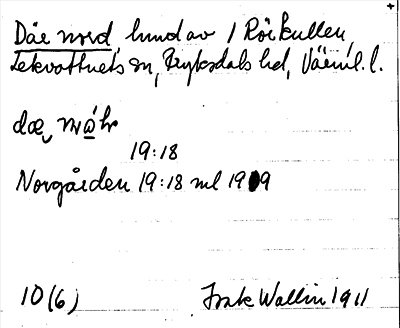 Dåe nord, hund av / Rörkullen,
Lekvattnets sn, Fryksdals hd, Värml. l.
19:18
Norgården 19:18 ml 1909
10(6) Frak Wallin 1911